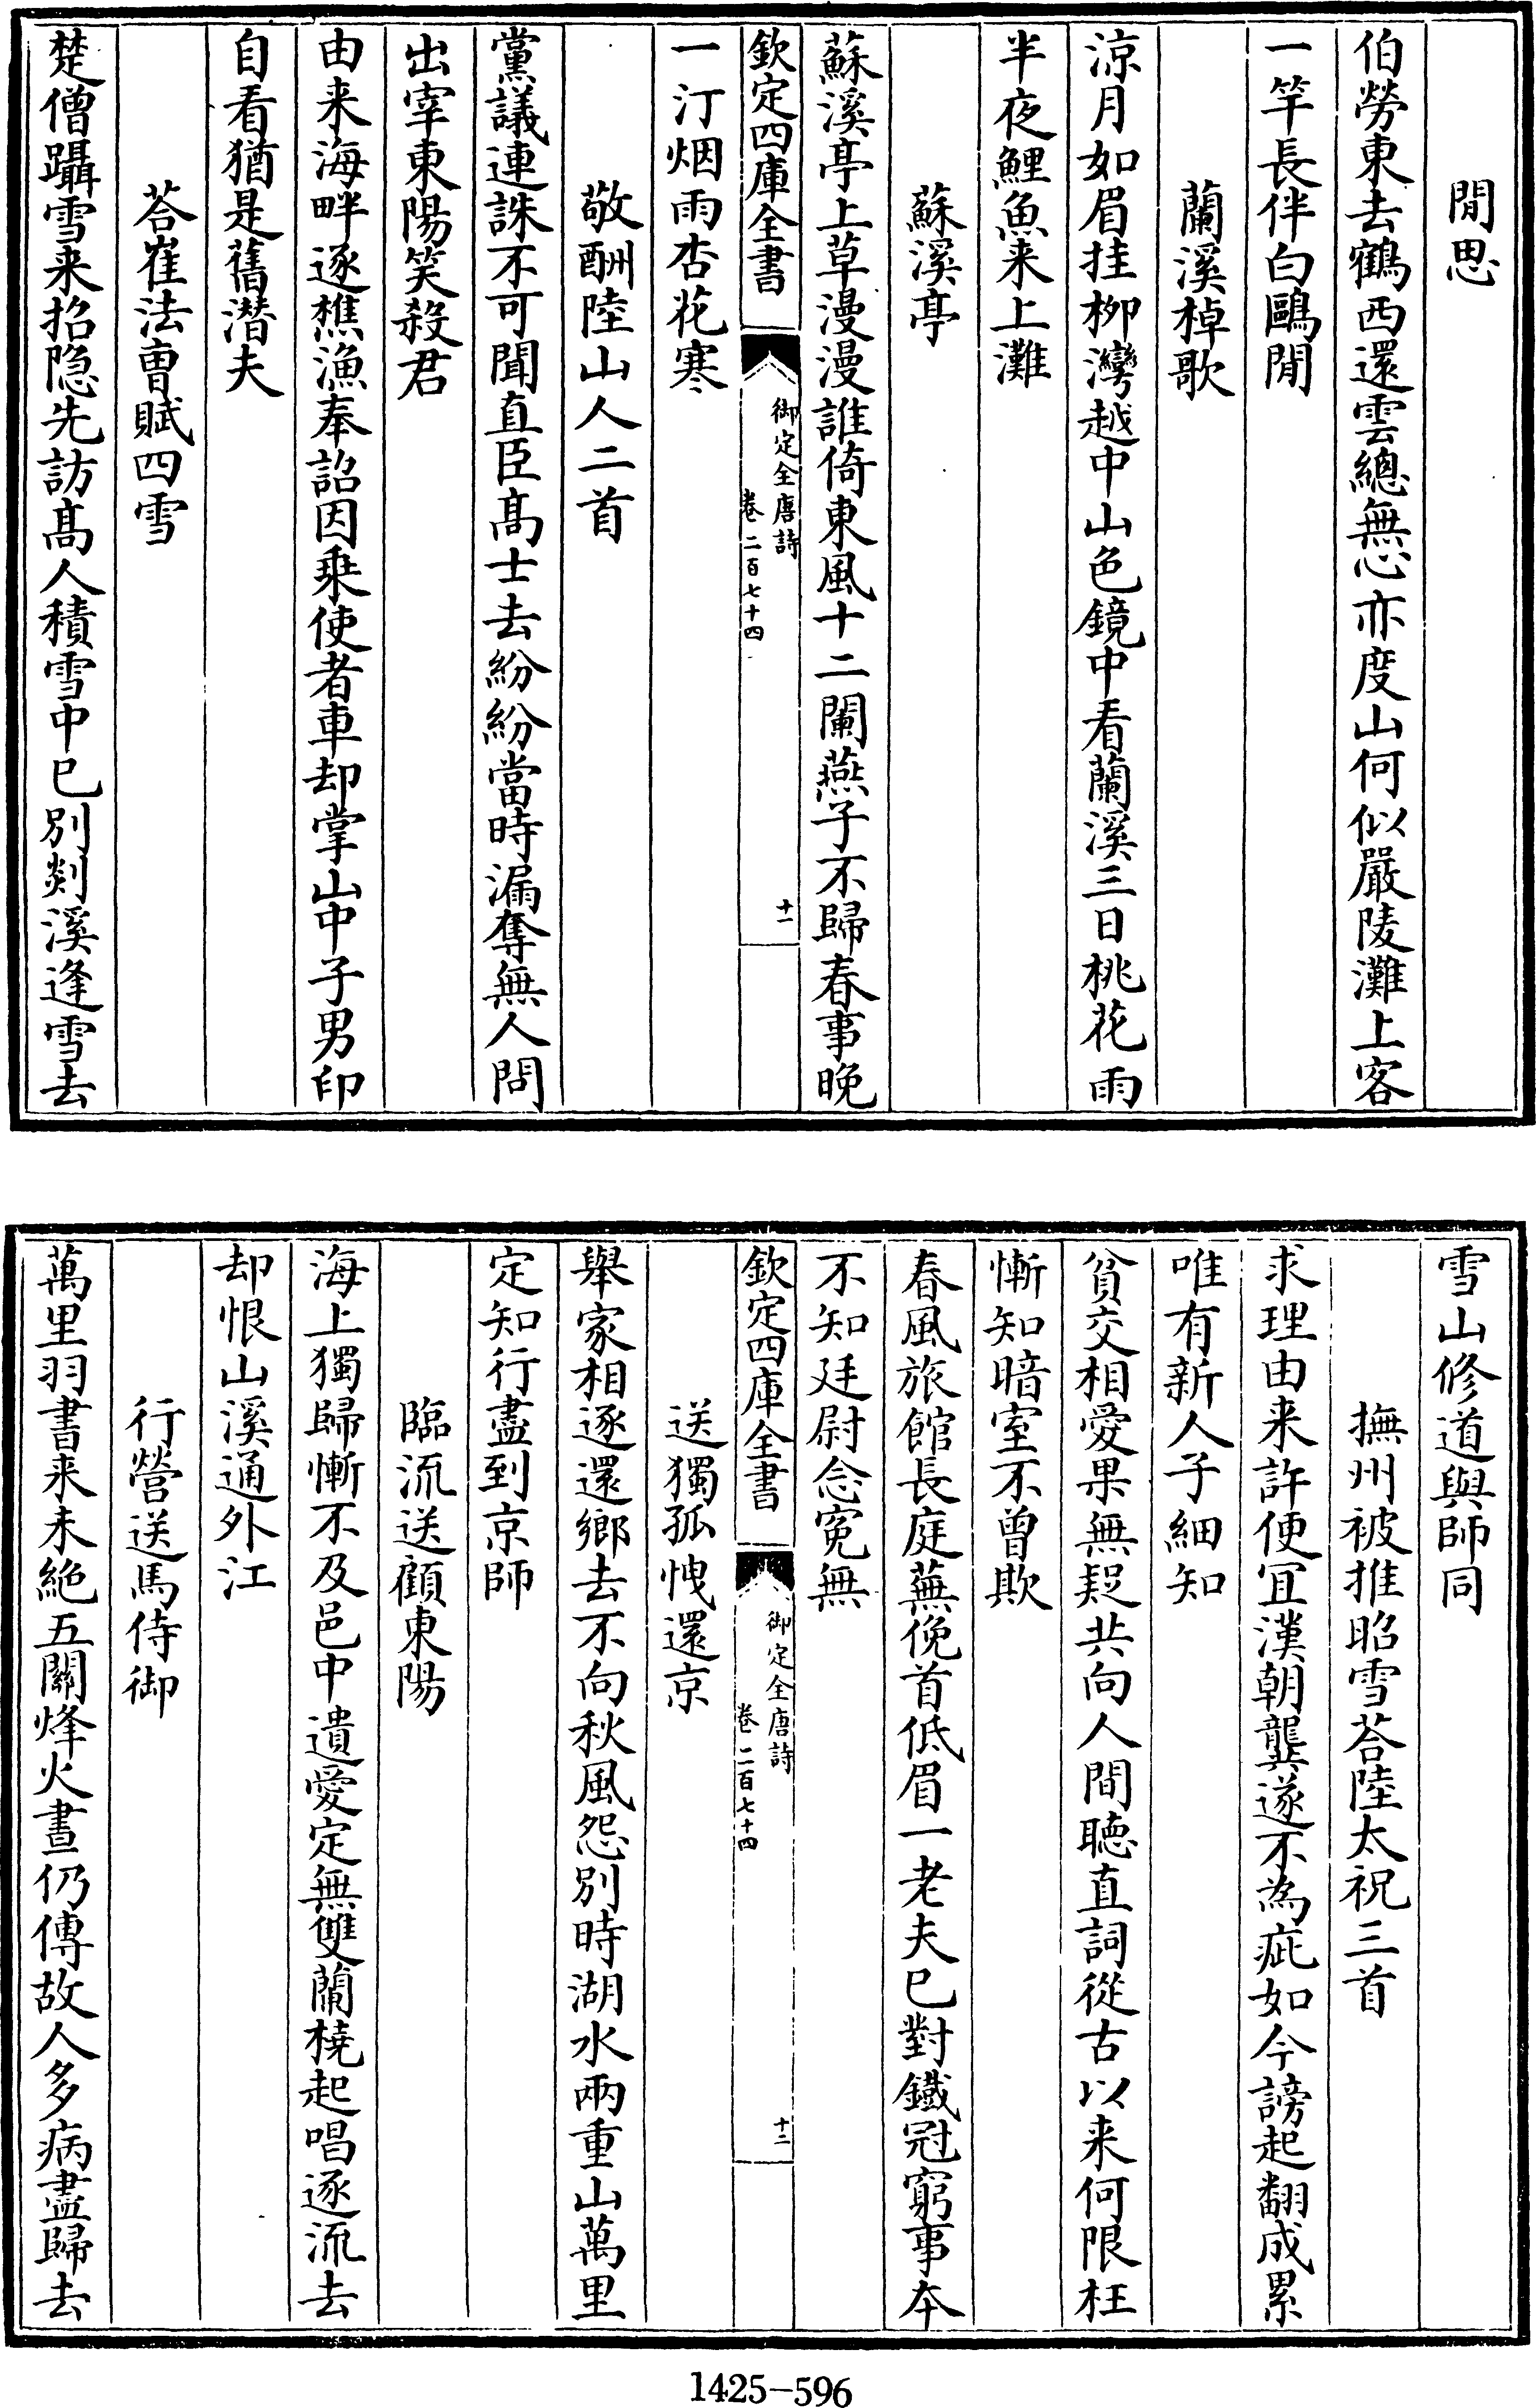 閒思
伯勞東去鶴西還雲總無心亦度山何似嚴陵灘上客
一竿長伴白鷗閒
蘭溪棹歌
涼月如眉挂柳灣越中山色鏡中看蘭溪三日桃花雨
半夜鯉魚来上灘
蘇溪亭
蘇溪亭上草漫漫誰倚東風十二闌燕子不歸春事晚
欽定四庫全書
御定全唐詩
卷二百七十四
十一
一汀烟雨杏花寒
敬酬陸山人二首
黨議連誅不可聞直臣髙士去紛紛當時漏奪無人問
出宰東陽笑殺君
由来海畔逐樵漁奉詔因乗使者車却掌山中子男印
自看猶是舊潜夫
荅崔法曹賦四雪
楚僧躡雪来招隐先訪髙人積雪中已別剡溪逢雪去
雪山修道與師同
撫州被推昭雪荅陸太祝三首
求理由来許便宜漢朝龔遂不為疵如今謗起翻成累
唯有新人子細知
貧交相愛果無疑共向人間聴直詞從古以来何限枉
慚知暗室不曾欺
春風旅館長庭蕪俛首低眉一老夫已對鐡冠窮事本
不知廷尉念寃無
欽定四庫全書
御定全唐詩
卷二百七十四
十二
送獨孤愧還京
舉家相逐還鄉去不向秋風怨別時湖水兩重山萬里
定知行盡到京師
臨流送顧東陽
海上獨歸慚不及邑中遺愛定無雙蘭橈起唱逐流去
却恨山溪通外江
行營送馬侍御
萬里羽書来未絶五關烽火晝仍傳故人多病盡歸去
1425-596